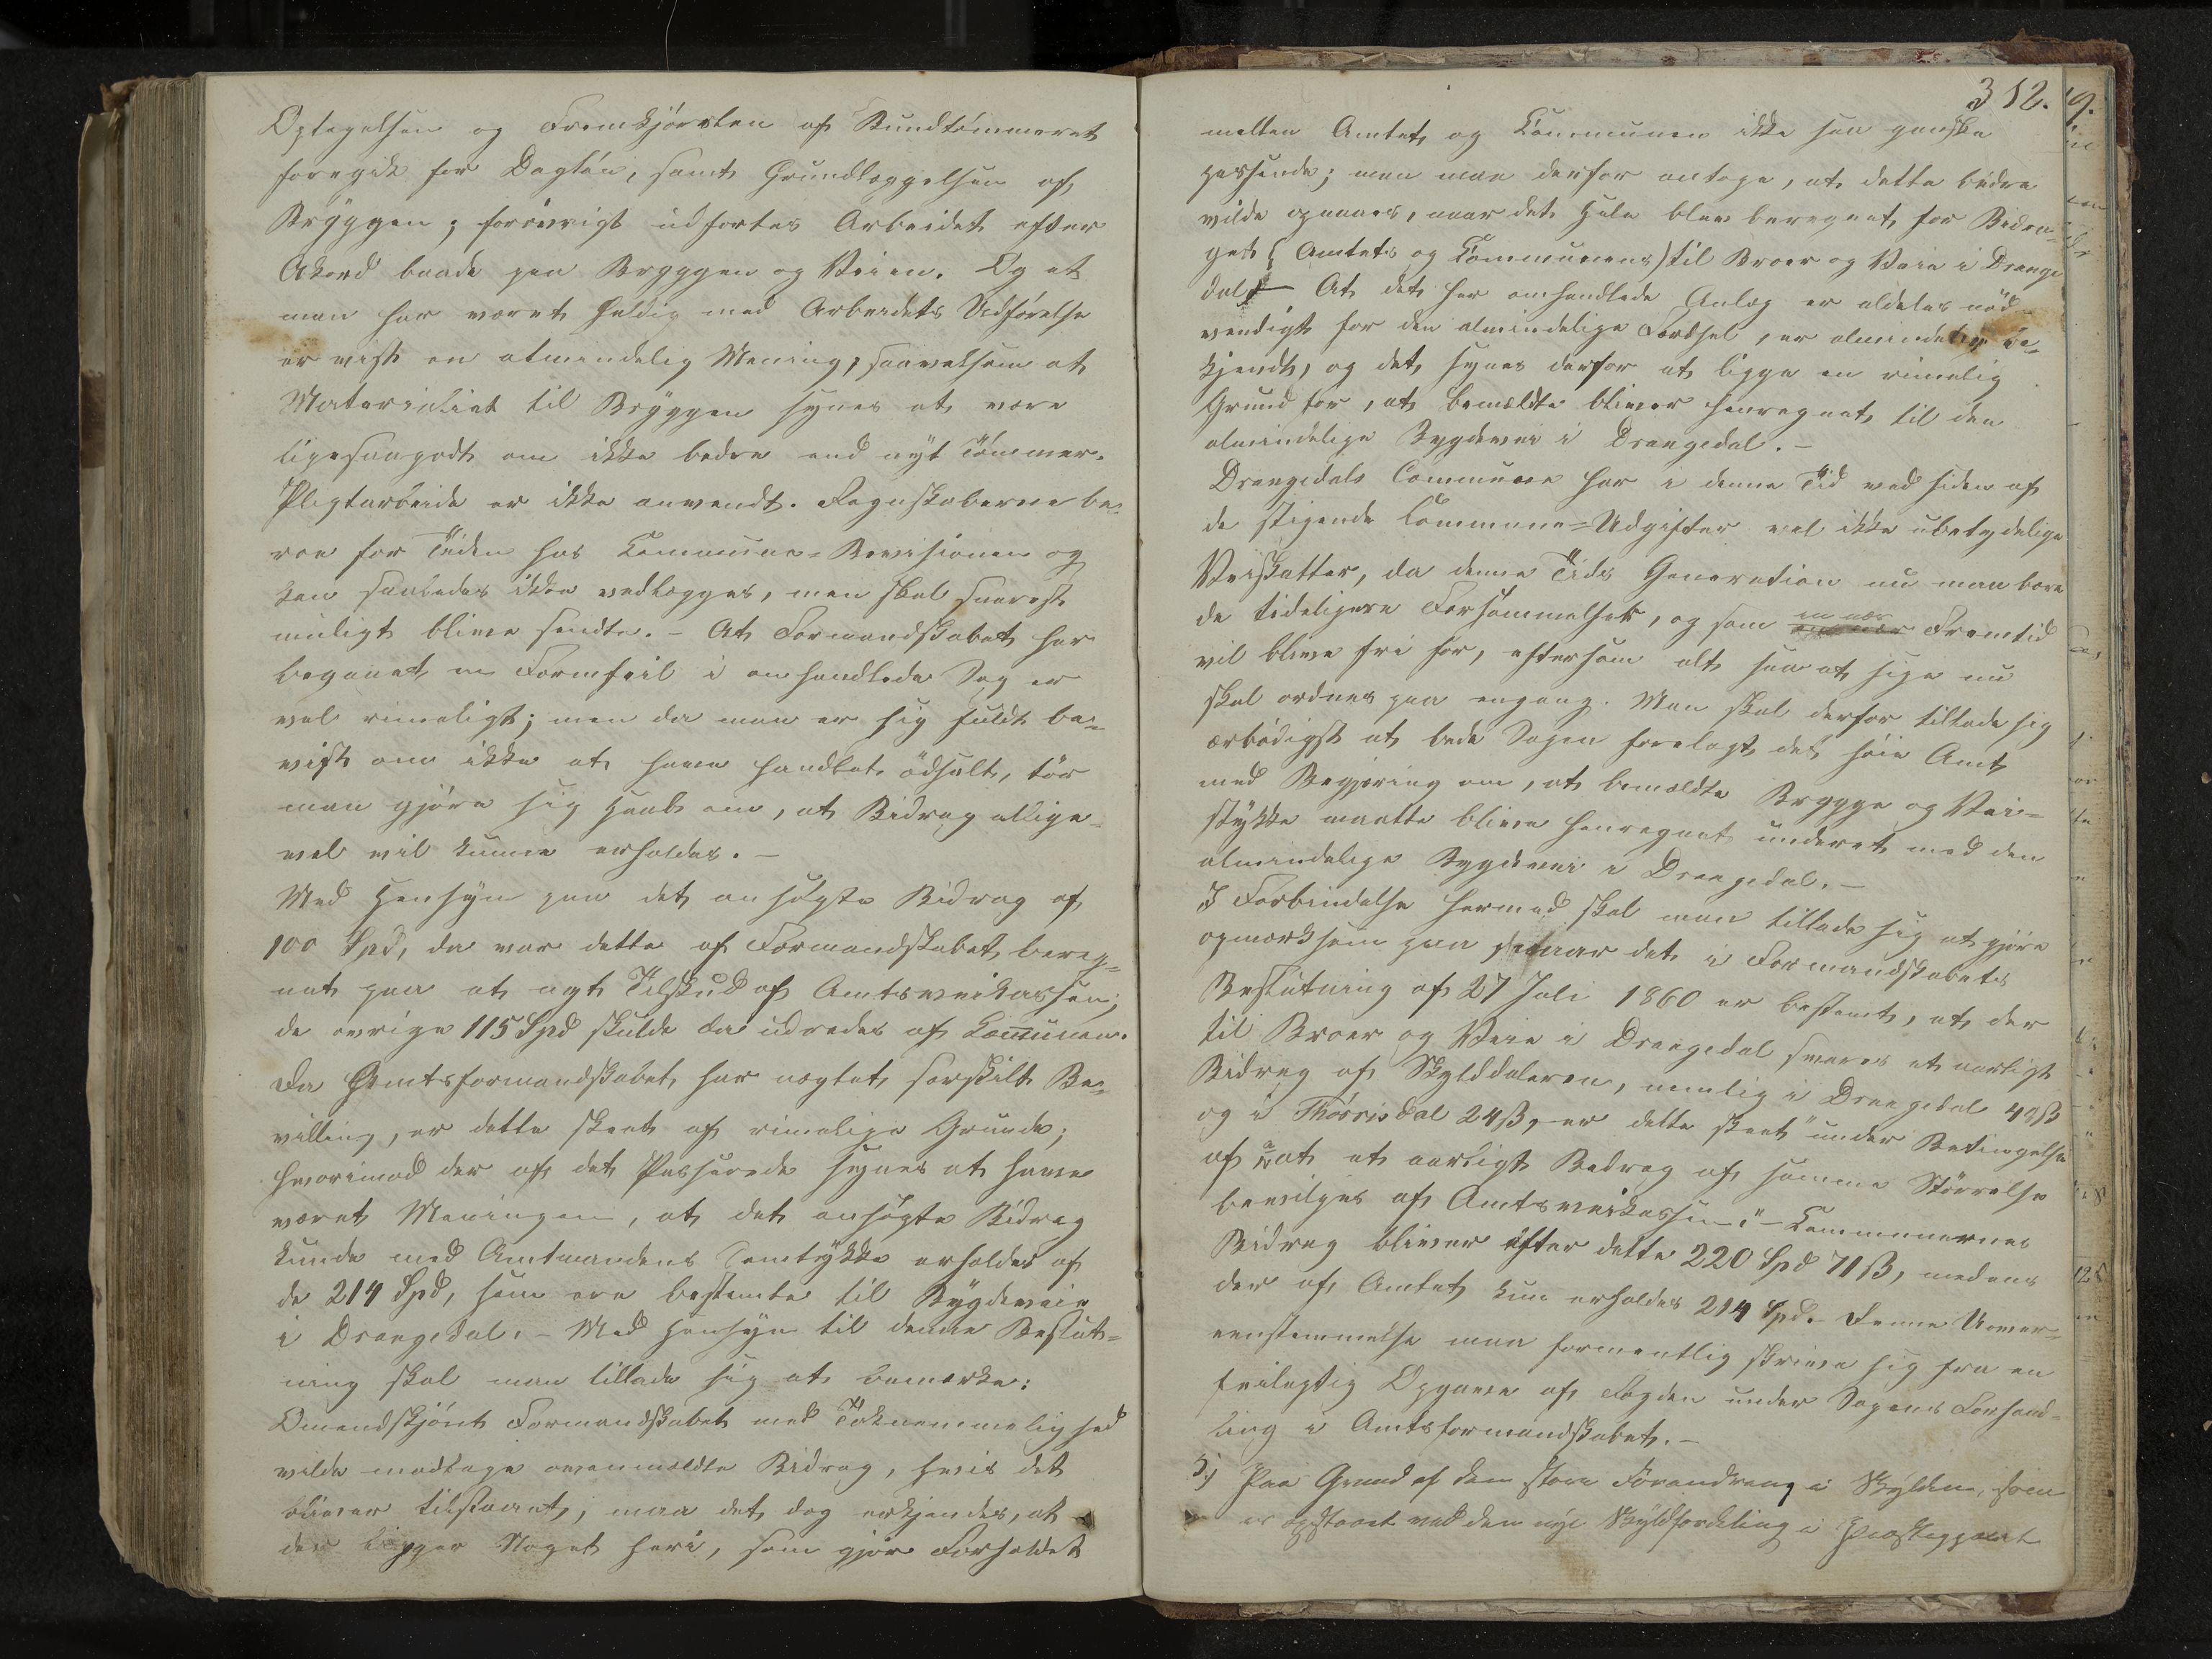 Optagelsen og Fremkjørslen af Bundtømmeret
foregik for Dagløn, samt Grundlæggelsen af
Bryggen; forøvrigt udførtes Arbeidet efter
Akord baade paa Bryggen og Veien. Og at
man har været heldig med Arbeidets Udførelse
er vist en almindelig Mening, saavelsom at
Materialiet til Bryggen synes at være
ligesaagodt om ikke bedre end nyt Tømmer.
Pligtarbeide er ikke anvendt. Regnskaberne be-
roe for Tiden hos Commune-Revisionen og
kan saaledes ikke vedlægges, men skal snarest
muligt blive sendte. – At Formandskabet har
begaaet en Formfeil i omhandlede Sag er
vel rimeligt; men da man er sig fuldt be-
vist om ikke at have handlet ødselt, tør
man gjøre sig Haab om, at Bidrag allige-
vel vil kunne erholdes. –
Med Hensyn paa det ansøgte Bidrag af
100 Spd, da var dette af Formandskabet bereg-
net paa at ugt Tilskud af Amtsveikassen;
de øvrige 115 Spd skulde da udredes af Communen.
Da Amtsformandskabet har nægtet særskilt Be-
villing, er dette skeet af rimelige Grunde;
hvorimod der af det Passerede synes at have
været Meningen, at det ansøgte Bidrag
kunde med Amtmandens Samtykke erholdes af
de 214 Spd, som ere bestemte til Bygdeveie
i Drangedal. – Med Hensyn til denne Beslut-
ning skal man tillade sig at bemærke:
Omendskjønt Formandskabet med Taknemmelighed
vilde modtage ovenmældte Bidrag, hvis det
bliver tilstaaet, maa det dog erkjendes, at
der ligger Noget heri, som gjør Forholdet
312.
mellem Amtet og Communen ikke saa ganske
passende; man maa derfor antage, at dette bedre
vilde opnaaes, naar det Hele blev beregnet for Bidra-
get (Amtets og Communens) til Broer og Veie i Drange
dal – At det her omhandlede Anlæg er aldeles nød-
vendigt for den almindelige Færdsel, er almindelig be-
kjendt, og det synes derfor at ligge en rimelig
Grund for, at bemældte bliver henregnet til den
almindelige Bygdevei i Drangedal. –
Drangedals Commune har i denne Tid ved siden af
de stigende Commune-Udgifter vel ikke ubetydelige
Veiskatter, da denne Tids Generation nu maa bære
de tidligere Forsømmelser, og som en nær Fremtid
vil blive fri for, eftersom alt saa at sige nu
skal ordnes paa engang. Man skal derfor tillade sig
ærbødigst at bede Sagen forelagt det høie Amt
med Begjæring om, at bemældte Brygge og Vei-
stykke maatte blive henregnet underet med den
almindelige Bygdevei i Drangedal. –
I Forbindelse hermed skal man tillade sig at gjøre
opmærksom paa, naar det i Formandskabets
Beslutning af 27 Juli 1860 er bestemt, at der
til Broer og Veie i Drangedal svares et aarligt
Bidrag af Skylddaleren, nemlig i Drangedal 48 ß
og i Thørrisdal 24 ß, er dette skeet "under Betingelse
af at et aarligt Bidrag af samme Størrelse
bevilges af Amtsveikassen." – Communernes
Bidrag bliver efter dette 220 Spd 71 ß, medens
der af Amtet kun erholdes 214 Spd. – Denne Uover-
eenstemmelse maa formentlig skrive sig fra en
feilagtig Opgave af Fogden under Sagens Forhand-
ling i Amtsformandskabet. –
5.) Paa Grund af den store Forandring i Skylden, som
er opstaaet ved den nye Skyldfordeling i Præstegjeldet